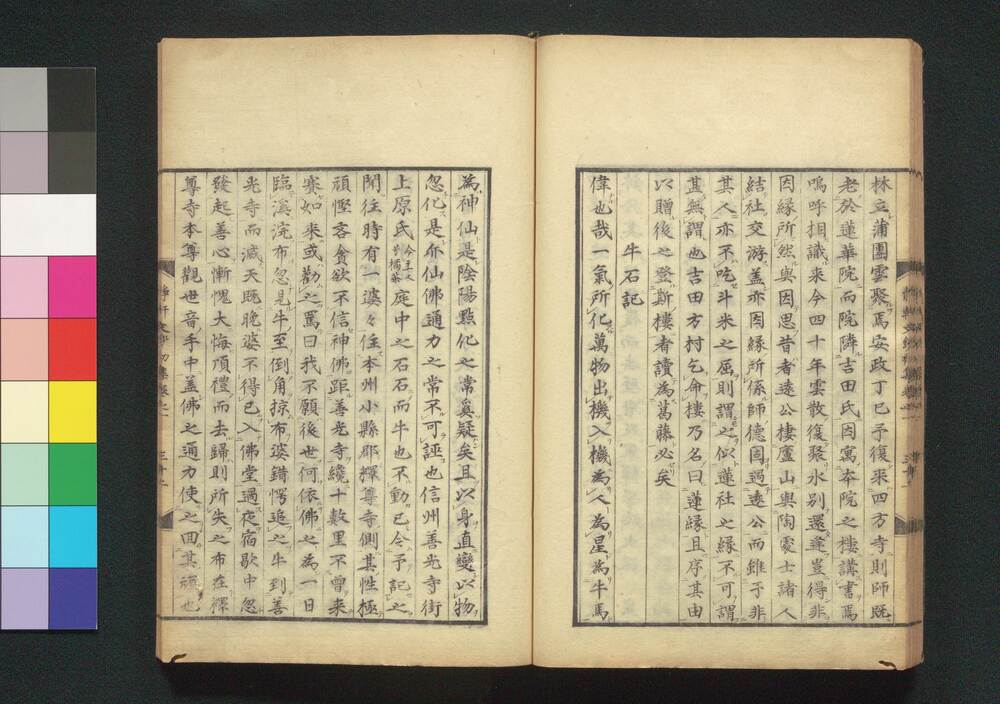 林立蒲團雲聚焉安政丁巳予復來四方寺則師既
老於蓮華院而院隣吉田氏因寓本院之樓講書焉
嗚呼相識來今四十年雲散復聚氷別還逢豈得非
因緣所然與因思昔者遠公棲廬山與陶處士諸人
結社交游蓋亦因緣所係師德固過遠公而雖予非
其人亦不吃斗米之屈則謂之似蓮社之緣不可謂
甚無謂也吉田方村乞命樓乃名曰蓮緣且序其由
以贈後之登斯樓者讀為葛藤必矣
牛石記
偉也哉一氣所化萬物出機入機為人為星為牛馬
為神仙是陰陽點化之常奚疑矣且以身直變以物
忽化是亦仙佛通力之常不可誣也信州善光寺街
上原氏今主人号橘菴庭中之石石而牛也不動已令予記之
聞往時有一婆々住本州小縣郡釋尊寺側其性極
頑慳吝貪欲不信神佛距善光寺纔十數里不曾來
賽如來或勸之罵曰我不願後世何依佛之為一日
臨溪浣布忽見牛至倒角掠布婆錯愕追之牛到善
光寺而滅天既晚婆不得已入佛堂過夜宿歇中忽
發起善心慚愧大悔頂禮而去歸則所失之布在釋
尊寺本尊觀世音手中蓋佛之通力使之回其頑也